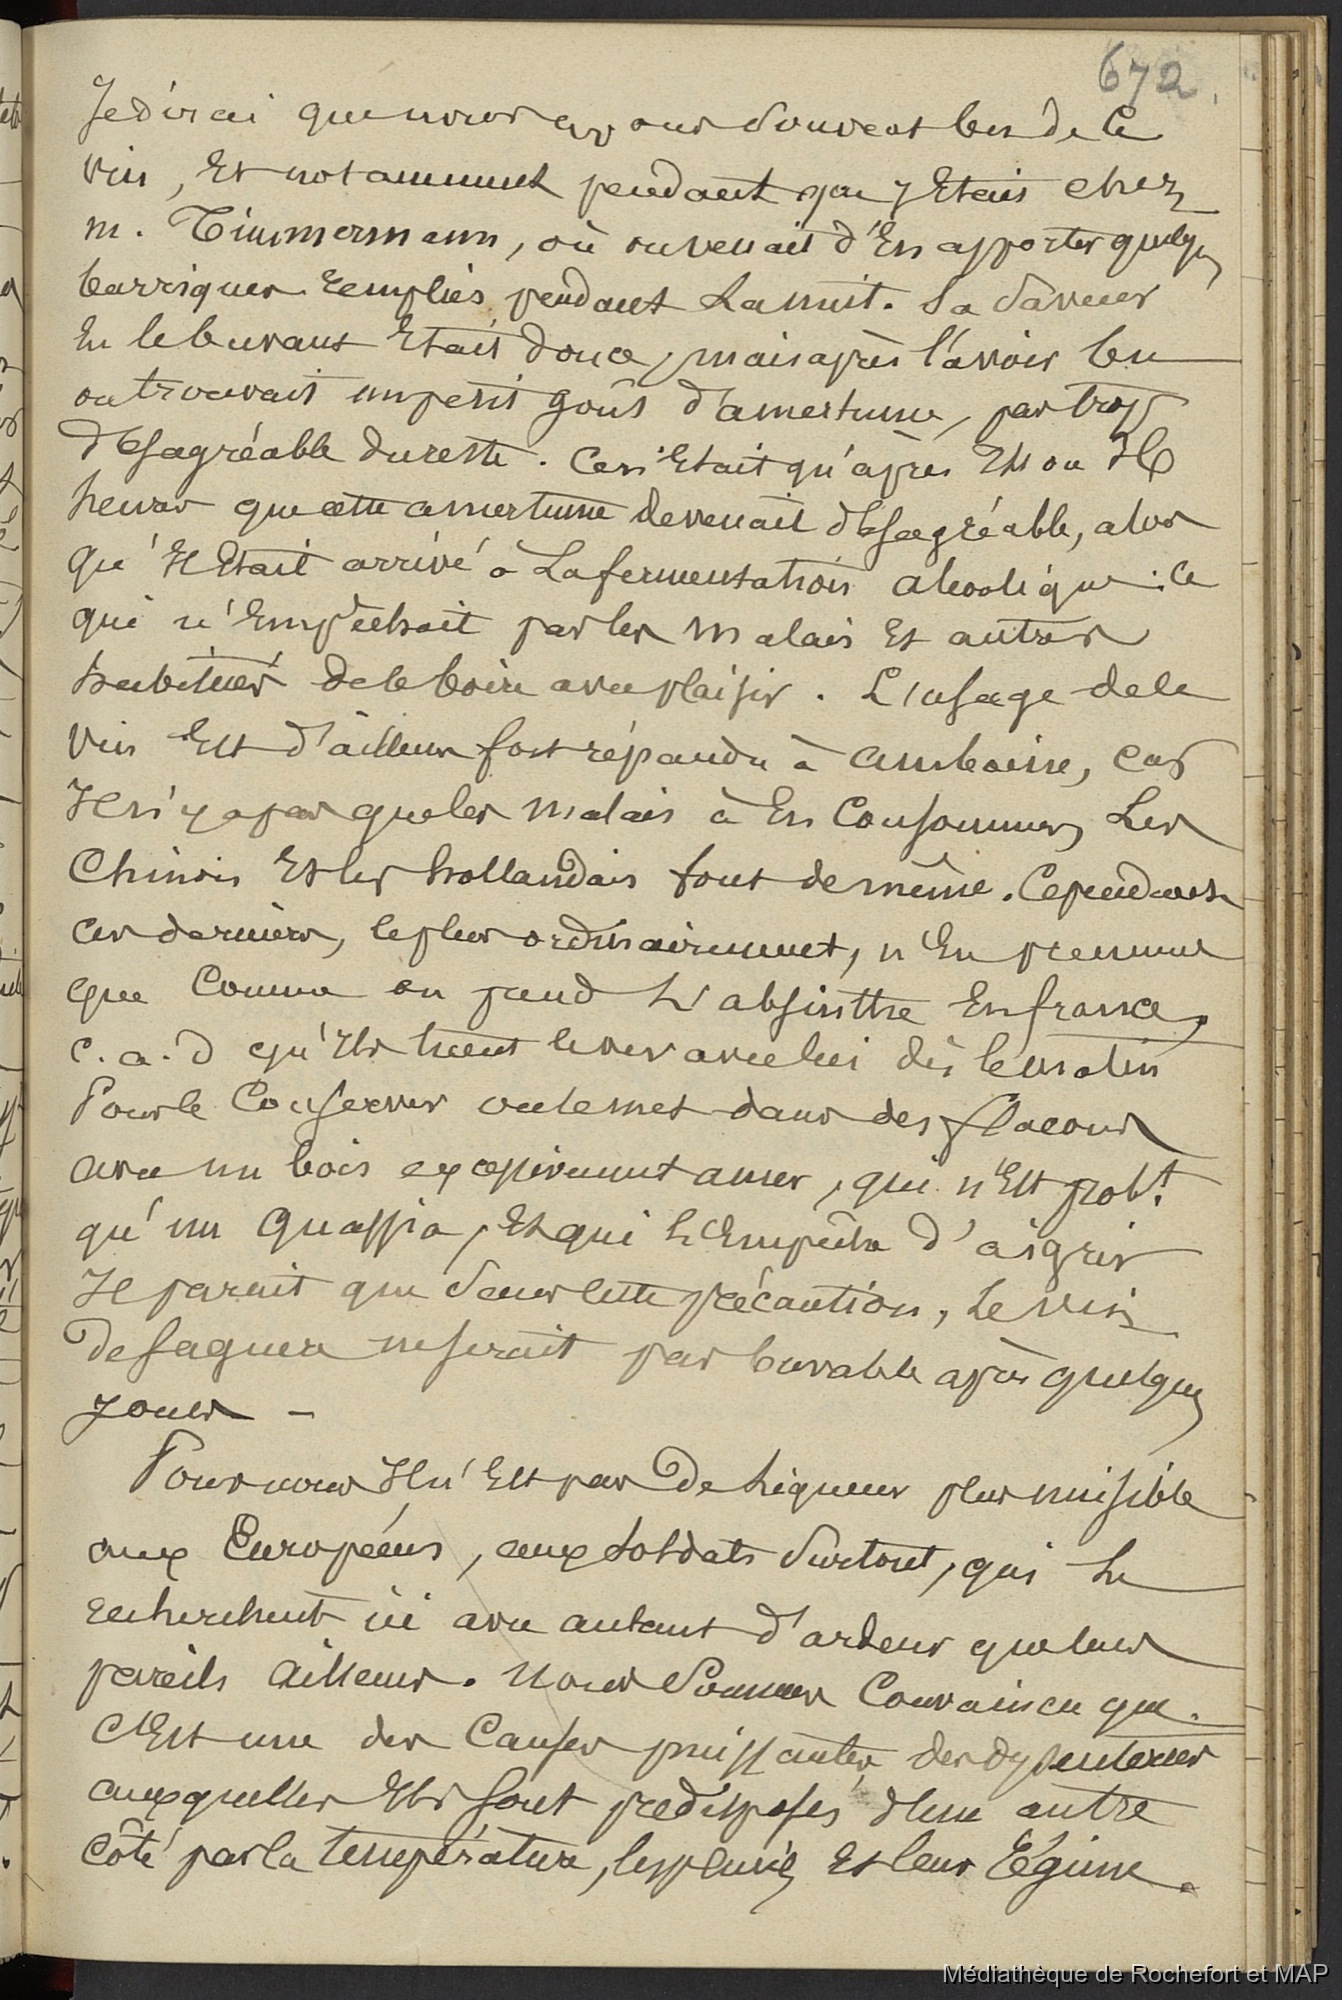 672.
Je dirai que nous avons souvent bu de ce
vin, Et notamment pendant que j'Etais chez
m. Timmermann, où on venait d'En apporter quelqs
barriques remplies pendant la nuit. Sa saveur
En le buvant Etait douce, mais après l'avoir bu
on trouvait un petit goût d'amertume, pas trop
désagréable du reste. Ce n'Etait qu'après 24 ou 36
heures que cette amertume devenait désagréable, alors
qu'Il Etait arrivé à La fermentation alcoolique : ce
qui n'Empêchait pas les malais Et autres
habitués de le boire avec plaisir. L'usage de le
vin Est d'ailleurs fort répandu à amboine, car
Il n'y a pas que les malais à En Consommer, Les
Chinois Et les hollandais font de même. Cependant
ces derniers, le plus ordinairement, n'En prennent
que Comme on prend L'absinthe En france,
c. a. d qu'Ils tuent le ver avec lui dès le matin
Pour le Conserver on le met dans des flacons
avec un bois excessivement amer, qui n'Est probt.
qu'un Quassia, Et qui L'Empêche d'aigrir
Il parait que sans cette précaution, Le vin
de saguera ne serait pas buvable après quelques
jours -
Pour nous Il n'Est pas de Liqueur plus nuisible
aux Européens, aux soldats surtout, qui Le
recherchent ici avec autant d'ardeur que leurs
pareils ailleurs. Nous Sommes Convaincu que
c'Est une des Causes puissantes des dysenteries
auxquelles Ils sont prédisposés d'une autre
côté par la température, les pluies Et leur Régime.
Médiathèque de Rochefort et MAP